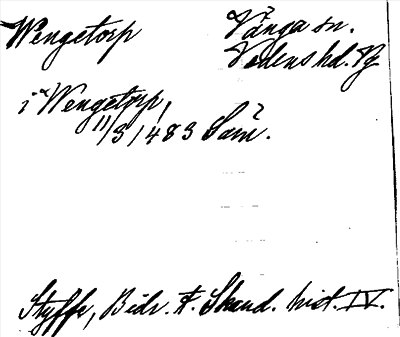 Wengetorp
Vånga sn.
Vadens hd. Vg
i "Wengetorp,
11/3 1483 Sam².
Styffe, Bidr. t. Skand. hist. IV.